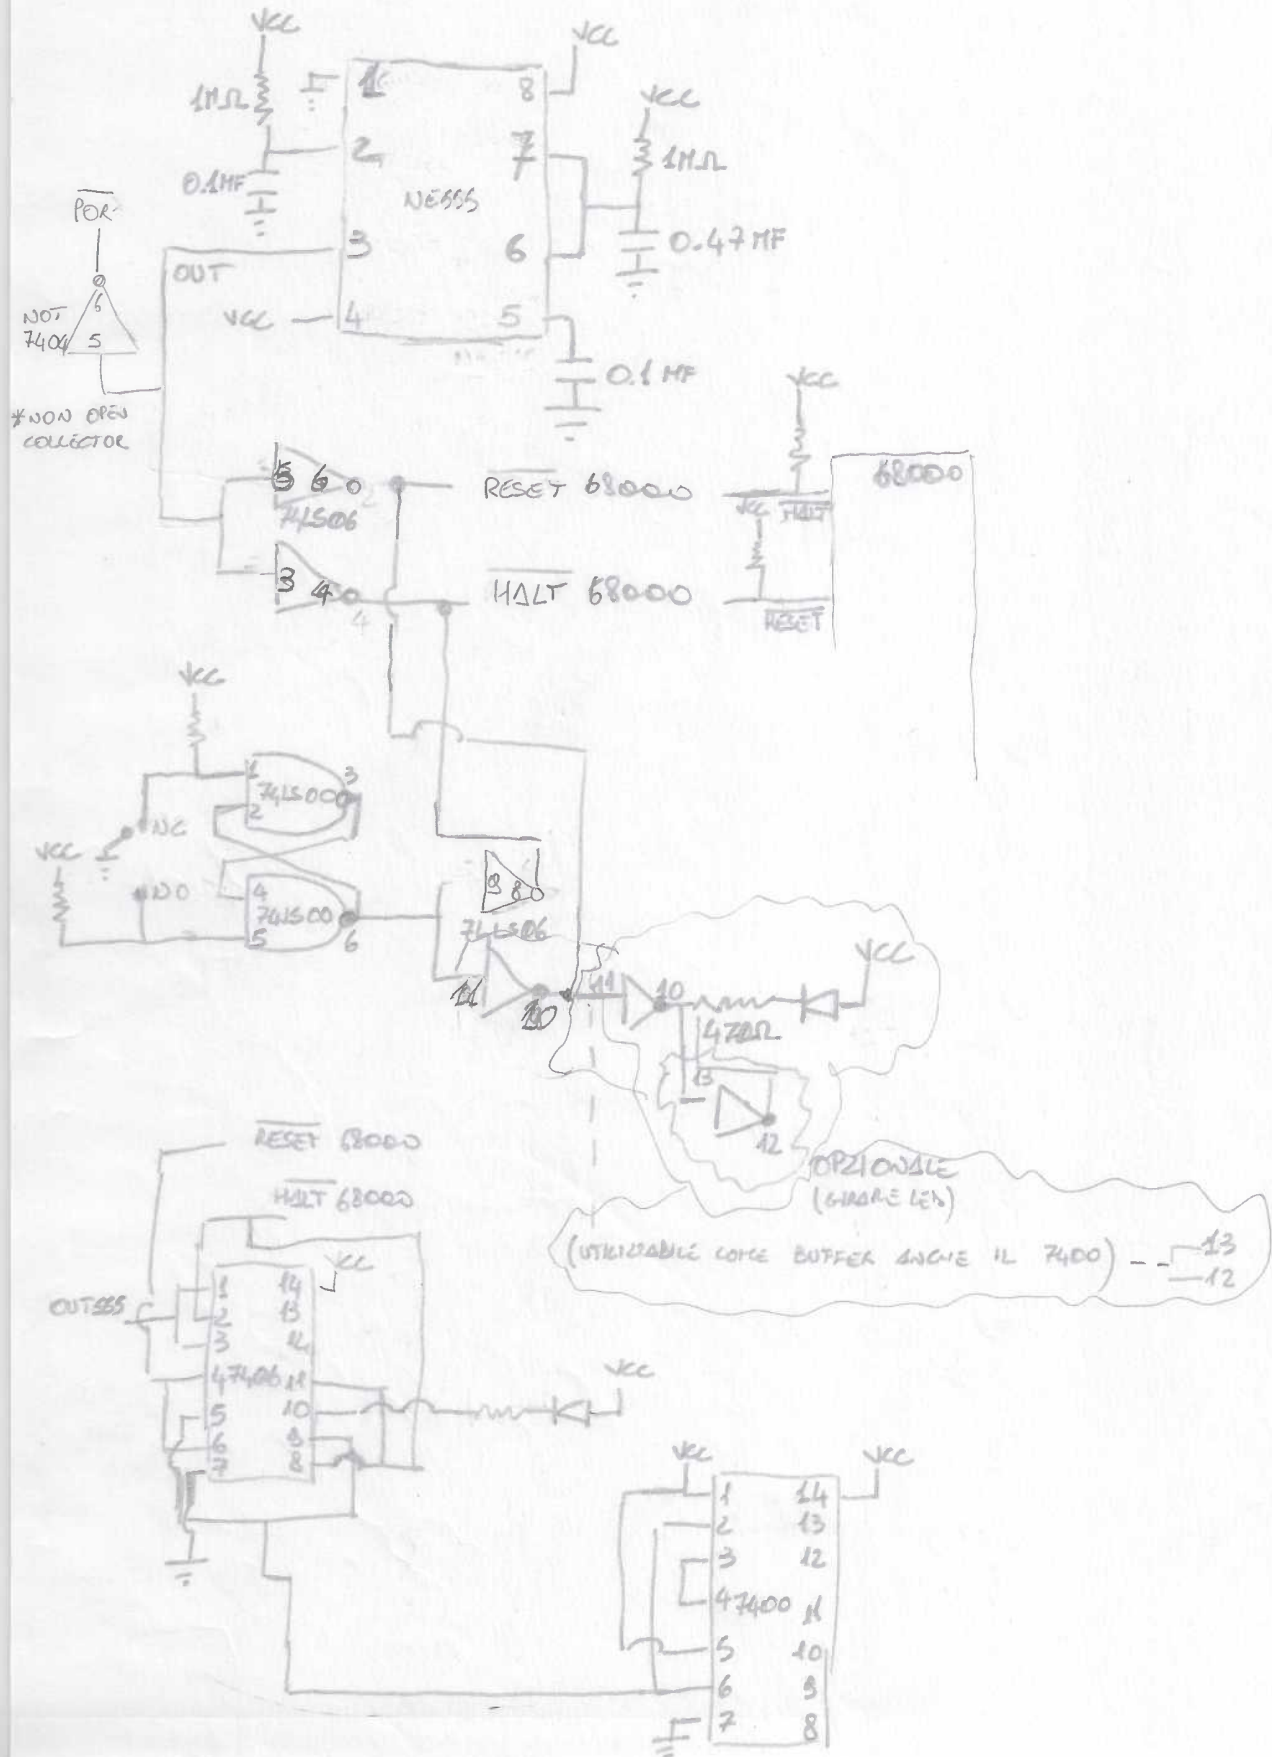 VCC
VCC
1MΩ
1
8
VCC
2
7
1MΩ
0.1MF
NE555
POR
3
6
0.47MF
OUT
6
NOT
7404
5
VCC
4
5
0.1MF
*NON OPEN
COLLECTOR
VCC
5 6
74LS06
RESET 68000
68000
VCC
HALT
3 4
4
HALT 68000
RESET
VCC
1
3
74LS00
2
NC
VCC
NO
4
74LS00
5
6
9 8
74LS06
11
10
11
10
VCC
470Ω
13
12
OPZIONALE
(GIRARE LED)
(UTILIZZABILE COME BUFFER ANCHE IL 7400)
13
12
RESET 68000
HALT 68000
VCC
OUT555
1 14
2 13
3 12
4 7406 11
5 10
6 9
7 8
VCC
VCC
VCC
1 14
2 13
3 12
4 7400 11
5 10
6 9
7 8